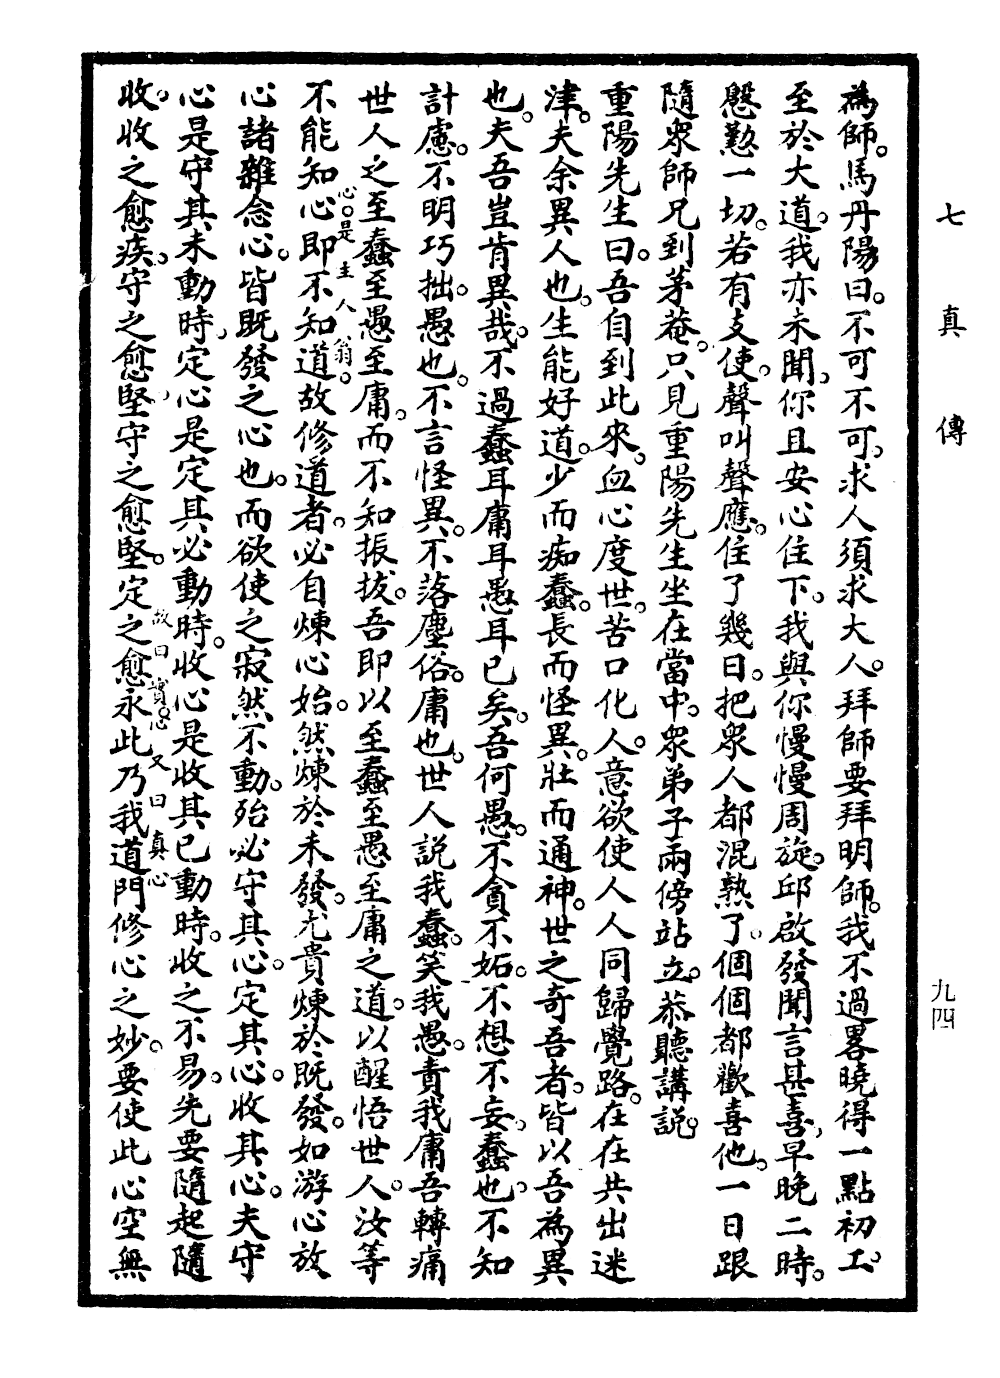 七真傳
九四
為師。馬丹陽曰。不可不可。求人須求大人。拜師要拜明師。我不過畧曉得一點初工。
至於大道。我亦未聞。你且安心住下。我與你慢慢周旋。邱啟發聞言甚喜。早晚二時。
慇懃一切。若有支使。聲叫聲應。住了幾日。把眾人都混熟了。個個都歡喜他。一日跟
隨眾師兄到茅菴。只見重陽先生坐在當中。眾弟子兩傍站立。恭聽講說。
重陽先生曰。吾自到此來。血心度世。苦口化人。意欲使人人同歸覺路。在在共出迷
津。夫余異人也。生能好道。少而痴蠢。長而怪異。壯而通神。世之奇吾者。皆以吾為異
也。夫吾豈肯異哉。不過蠢耳庸耳愚耳已矣。吾何愚。不貪不妬。不想不妄。蠢也。不知
計慮。不明巧拙。愚也。不言怪異。不落塵俗。庸也。世人說我蠢。笑我愚。責我庸。吾轉痛
世人之至蠢至愚至庸。而不知振拔。吾即以至蠢至愚至庸之道。以醒悟世人。汝等
不能知心即不知道。故修道者。必自煉心始。然煉於未發。尤貴煉於既發。如游心放
心。是主人翁。
心諸雜念心。皆既發之心也。而欲使之寂然不動。殆必守其心。定其心。收其心。夫守
心是守其未動時。定心是定其必動時。收心是收其已動時。收之不易。先要隨起隨
收。收之愈疾。守之愈堅。守之愈堅。定之愈永。此乃我道門修心之妙。要使此心空無
故曰實心。又曰真心